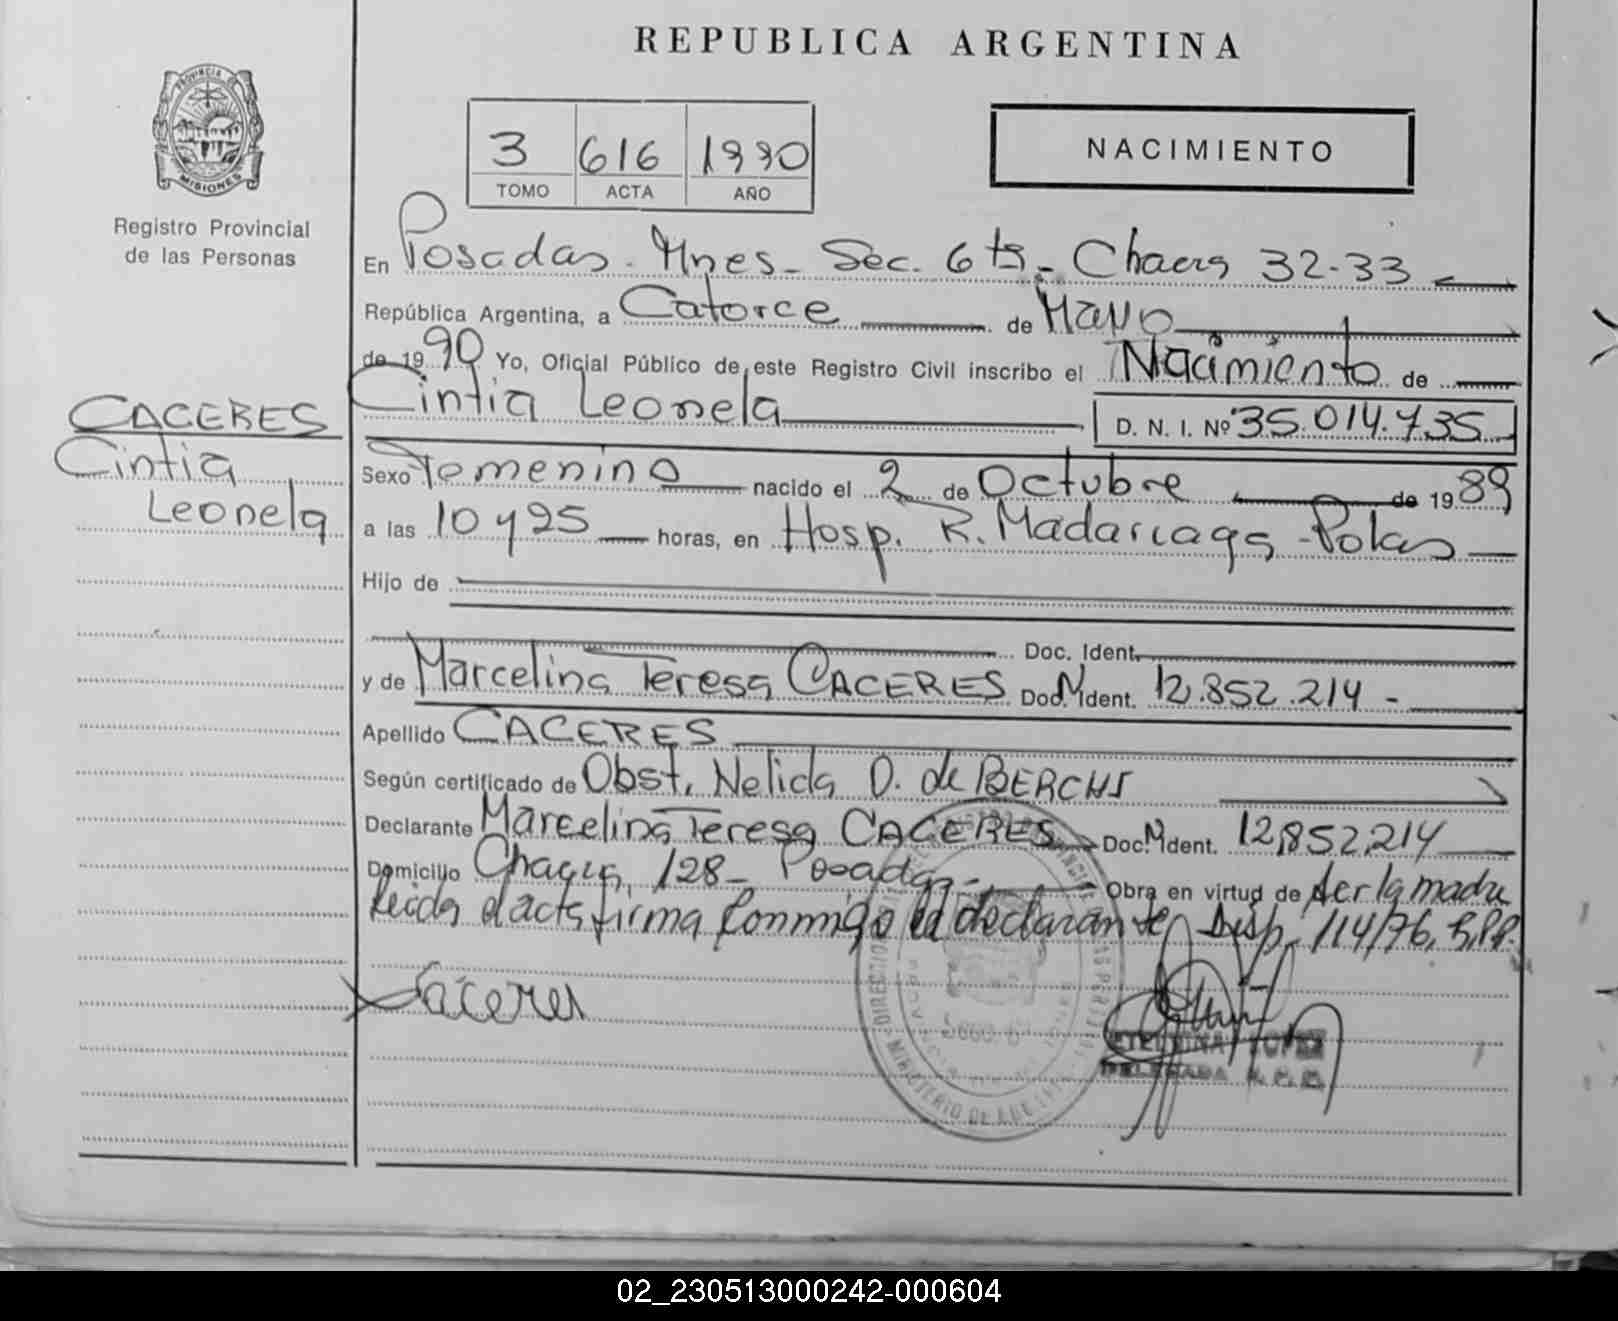 REPUBLICA ARGENTINA
PROVINCIA
MISIONES
Registro Provincial
de las Personas
3 616 1990
TOMO ACTA AÑO
NACIMIENTO
En Posadas - Mnes - Sec. 6ta - Chacra 32-33
República Argentina, a Catorce de Mayo
de 1990 Yo, Oficial Público de este Registro Civil inscribo el Nacimiento de
Cintia Leonela D. N. I. Nº 35.014.735
CACERES
Cintia
Leonela
Sexo Femenino nacido el 2 de Octubre de 1989
a las 10 y 25 horas, en Hosp. R. Madariaga -
Hijo de
Doc. Ident.
y de Marcelina Teresa CACERES Doc. Ident. 12.852.214 -
Apellido CACERES
Según certificado de Obst. Nelida D. de
Declarante Marcelina Teresa CACERES Doc. Ident. 12.852.214
Domicilio Chacra 128 - Posadas - Obra en virtud de ser la madre
leida el acta firma conmigo la declarante Disp. 114/76.
Caceres
LOPEZ
DELEGADA R. P. P.
02_230513000242-000604